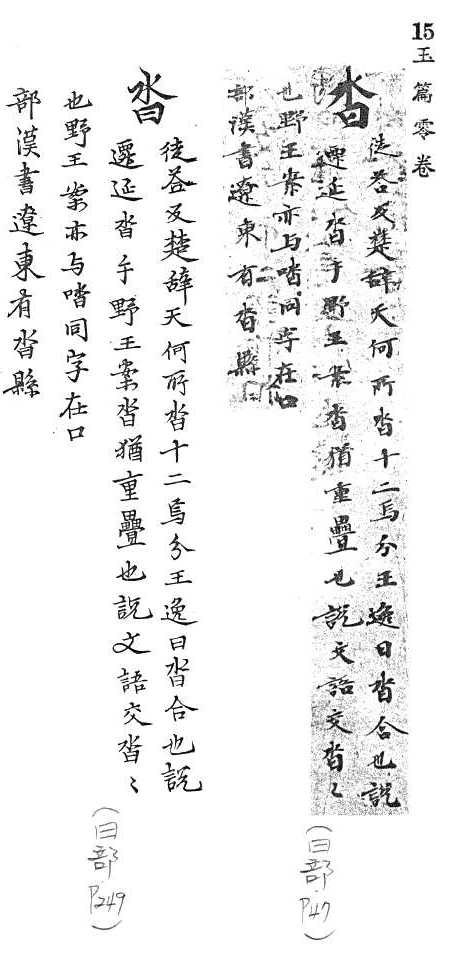 15 玉篇零卷
沓
徒荅反楚辞天何所沓十二焉分王逸曰沓合也説
遷延沓手野王案沓猶重疊也説文語交沓〻
也野王案亦与同字在口
部漢書遼東有沓縣
(曰部 P47)
沓
徒荅反楚辞天何所沓十二焉分王逸曰沓合也説
遷延沓手野王案沓猶重疊也説文語交沓〻
也野王案亦与同字在口
部漢書遼東有沓縣
(曰部 P249)